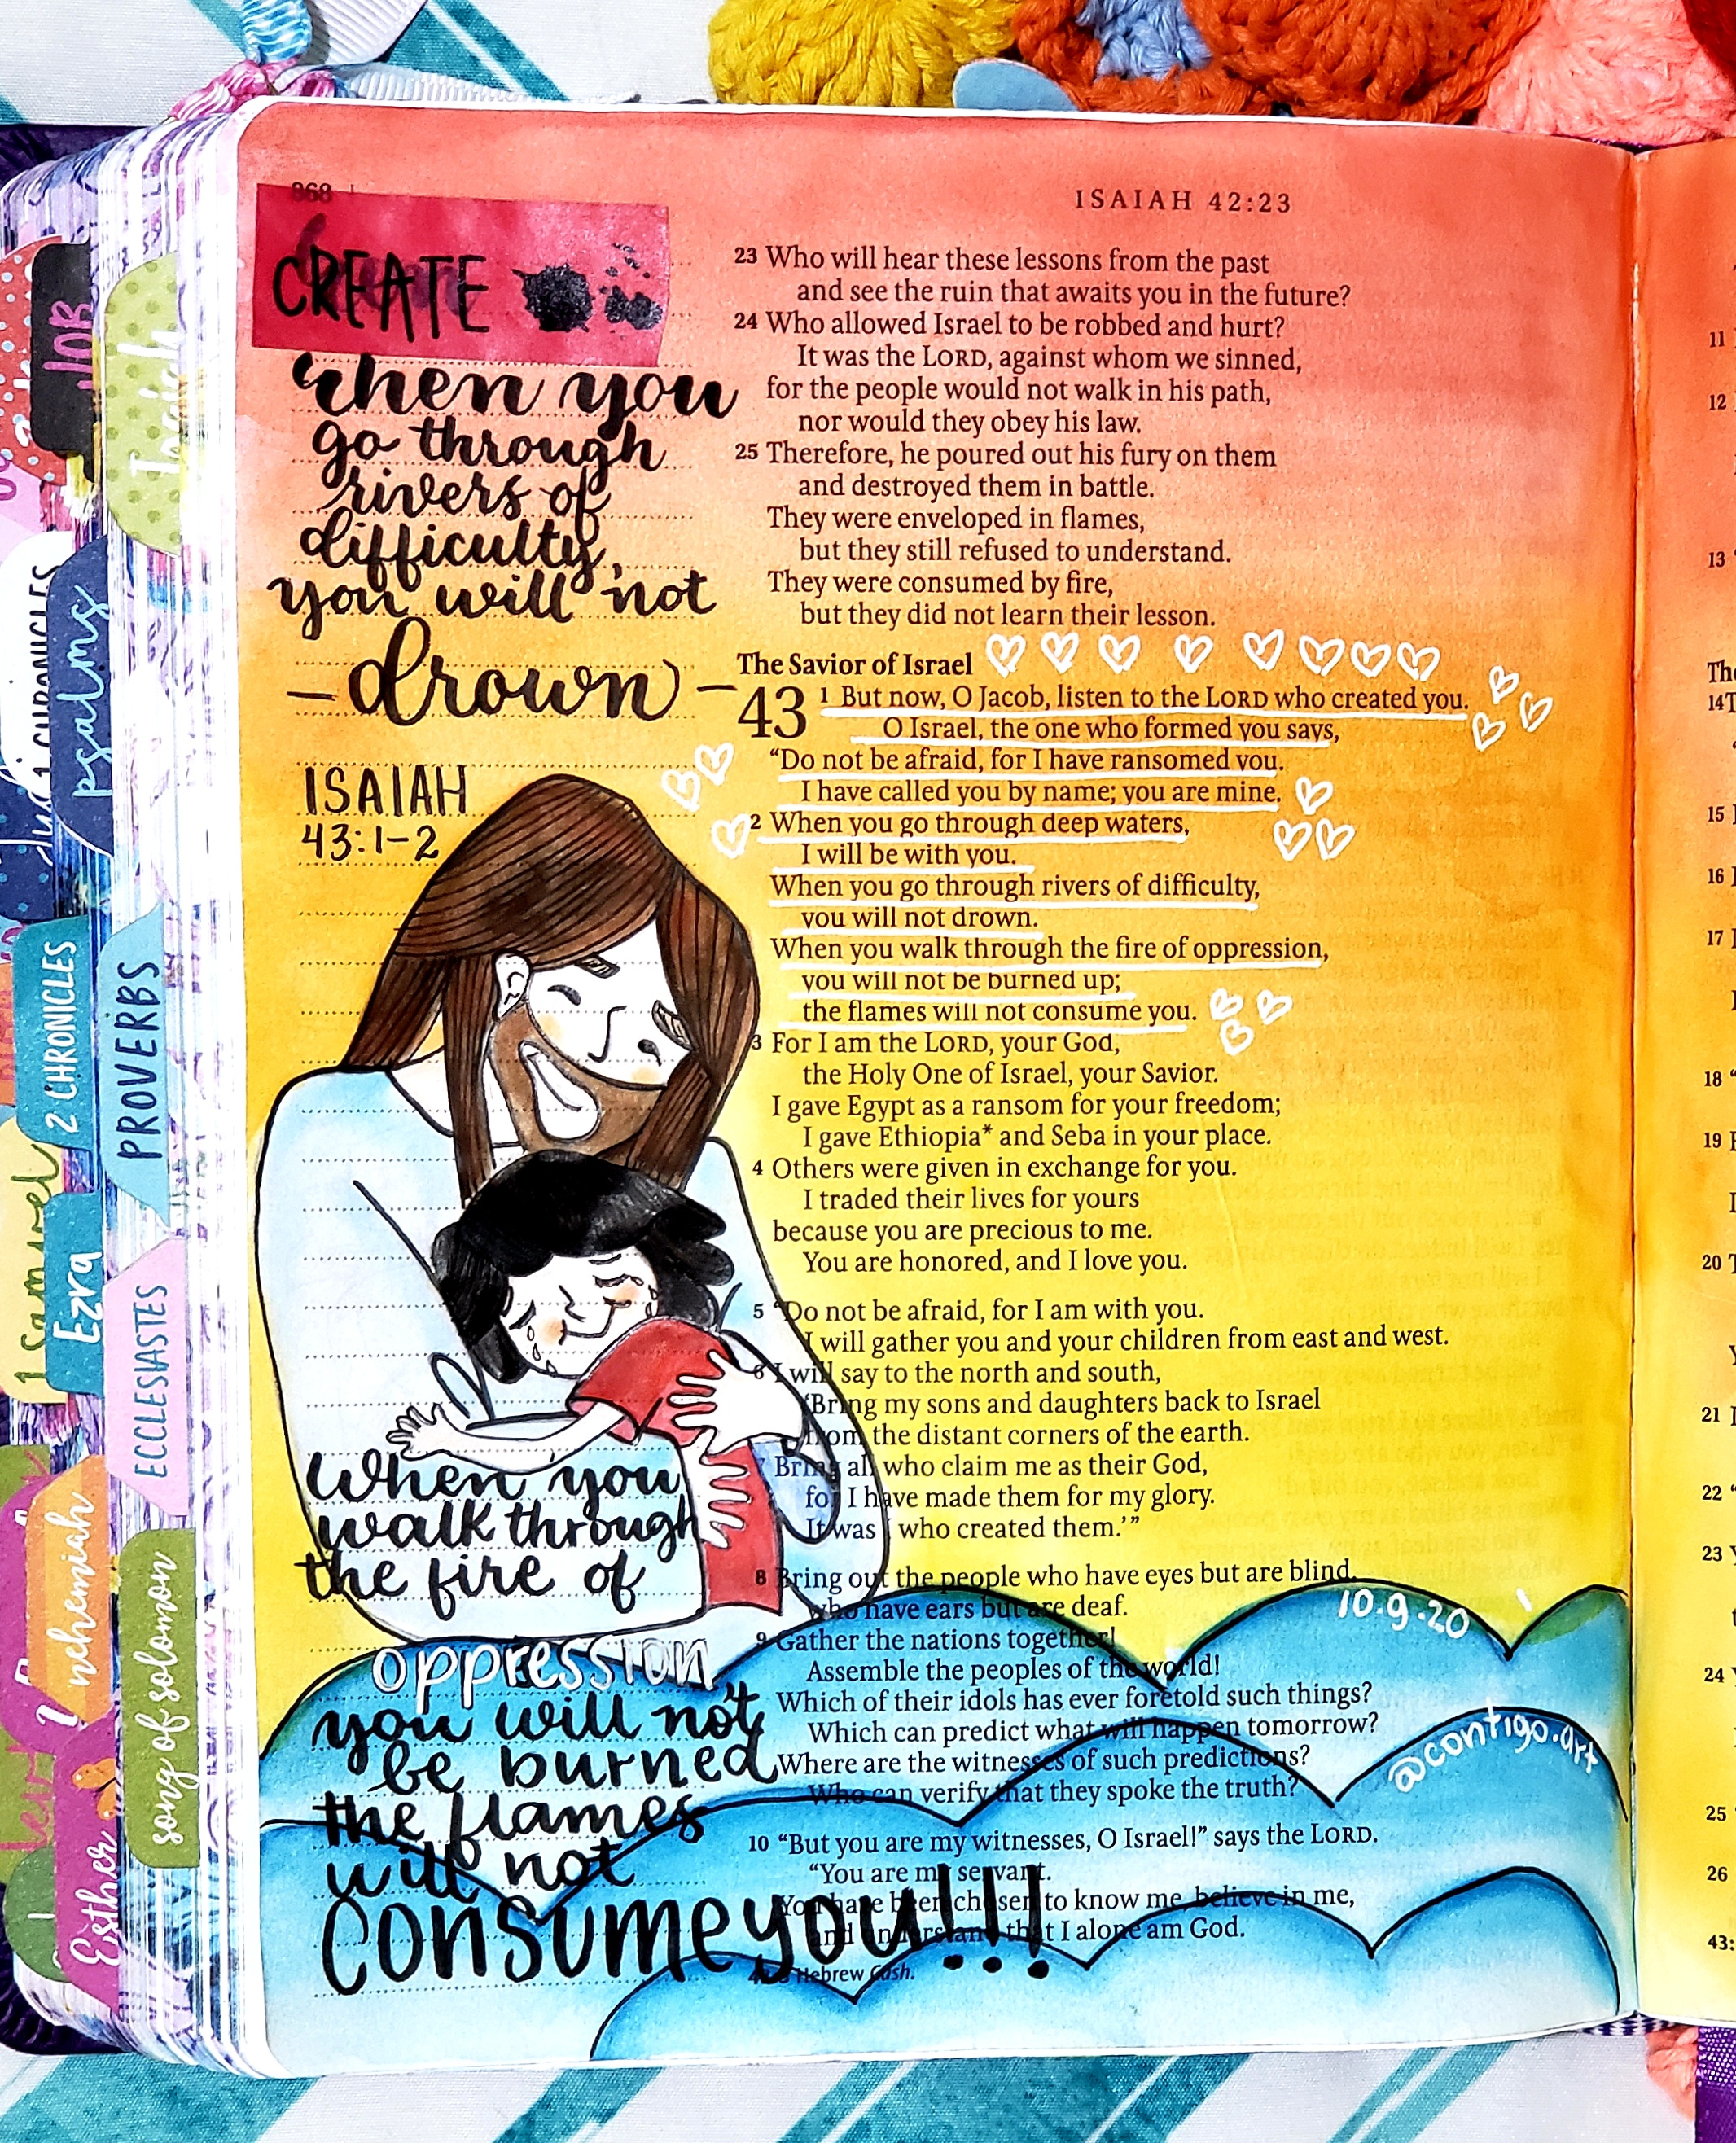 868
ISAIAH 42:23
CREATE
when you
go through
rivers of
difficulty,
you will not
-drown-
ISAIAH
43:1-2
when you
walk through
the fire of
oppression
you will not
be burned
the flames
will not
consume you!!!
23 Who will hear these lessons from the past
and see the ruin that awaits you in the future?
24 Who allowed Israel to be robbed and hurt?
It was the LORD, against whom we sinned,
for the people would not walk in his path,
nor would they obey his law.
25 Therefore, he poured out his fury on them
and destroyed them in battle.
They were enveloped in flames,
but they still refused to understand.
They were consumed by fire,
but they did not learn their lesson.
The Savior of Israel
43 1 But now, O Jacob, listen to the LORD who created you.
O Israel, the one who formed you says,
“Do not be afraid, for I have ransomed you.
I have called you by name; you are mine.
2 When you go through deep waters,
I will be with you.
When you go through rivers of difficulty,
you will not drown.
When you walk through the fire of oppression,
you will not be burned up;
the flames will not consume you.
3 For I am the LORD, your God,
the Holy One of Israel, your Savior.
I gave Egypt as a ransom for your freedom;
I gave Ethiopia* and Seba in your place.
4 Others were given in exchange for you.
I traded their lives for yours
because you are precious to me.
You are honored, and I love you.
5 “Do not be afraid, for I am with you.
I will gather you and your children from east and west.
6 I will say to the north and south,
‘Bring my sons and daughters back to Israel
from the distant corners of the earth.
7 Bring all who claim me as their God,
for I have made them for my glory.
It was I who created them.’”
8 Bring out the people who have eyes but are blind,
who have ears but are deaf.
9 Gather the nations together!
Assemble the peoples of the world!
Which of their idols has ever foretold such things?
Which can predict what will happen tomorrow?
Where are the witnesses of such predictions?
Who can verify that they spoke the truth?
10 “But you are my witnesses, O Israel!” says the LORD.
“You are my servant.
You have been chosen to know me, believe in me,
and understand that I alone am God.
Hebrew Cush.
10.9.20
@contigo.art
JOB
Isaiah
1 CHRONICLES
psalms
2 CHRONICLES
PROVERBS
1 Samuel
Ezra
ECCLESIASTES
nehemiah
song of solomon
Esther
11
12
13
14
15
16
17
18
19
20
21
22
23
24
25
26
43: